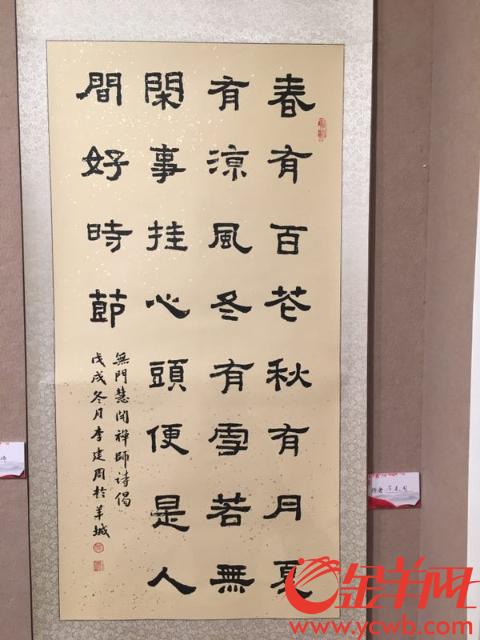 春有百花秋有月夏
有涼風冬有雪若無
閑事挂心頭便是人
間好時節
無門慧開禅師诗偈
戊戌冬月李建周於羊城
金羊网
www.ycwb.com